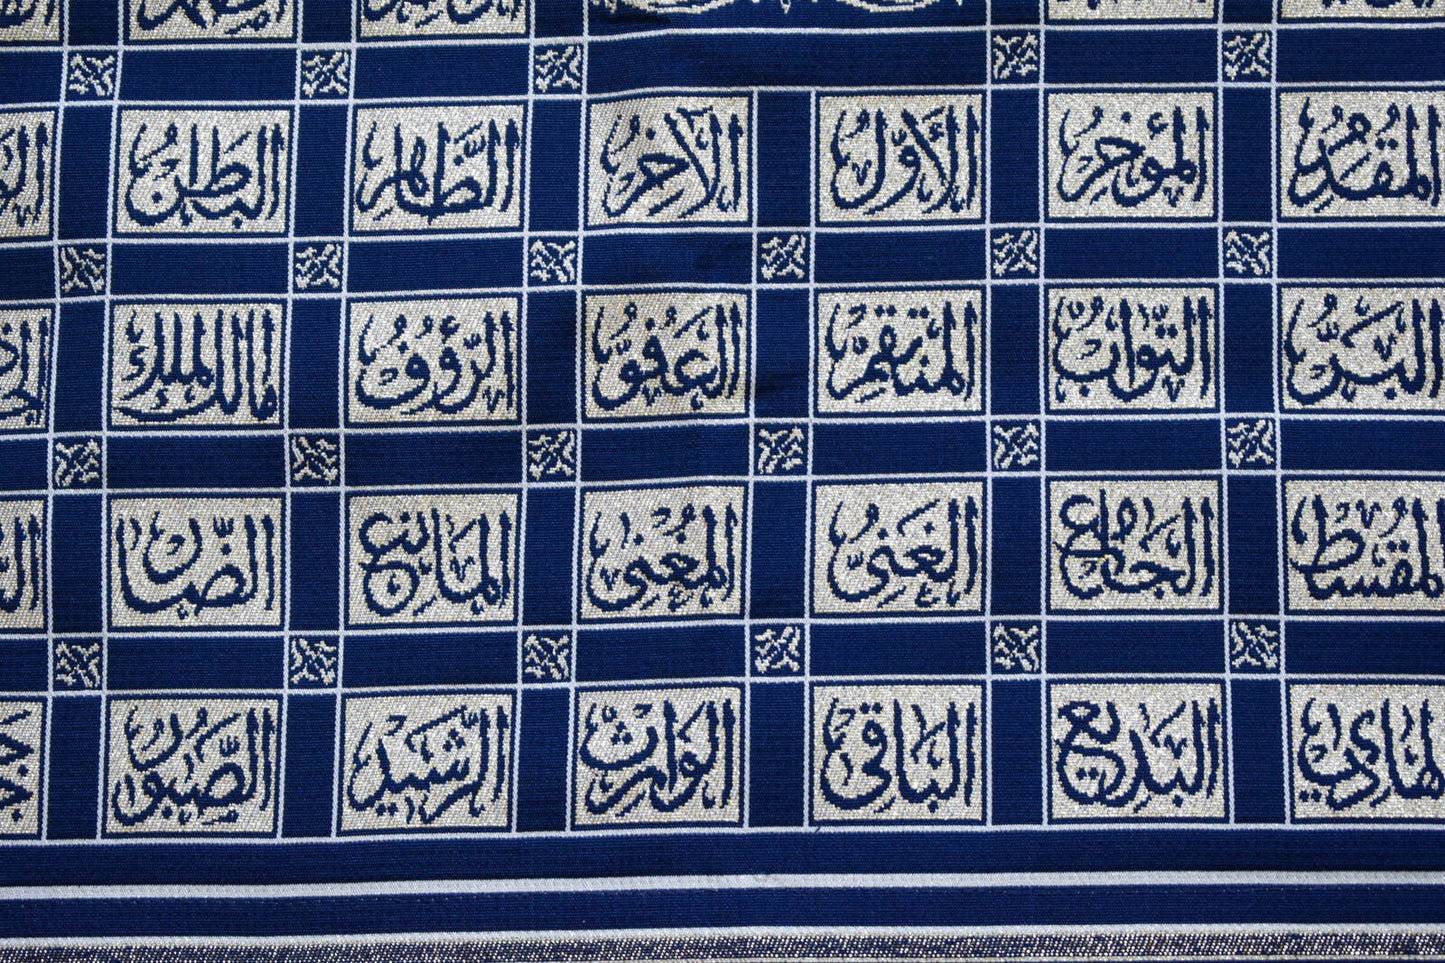 المقدم المؤخر الأول الآخر الظاهر الباطن
البر التواب المنتقم العفو الرؤوف مالك الملك
المقسط الجامع الغني المغني المانع الضار
الهادي البديع الباقي الوارث الرشيد الصبور